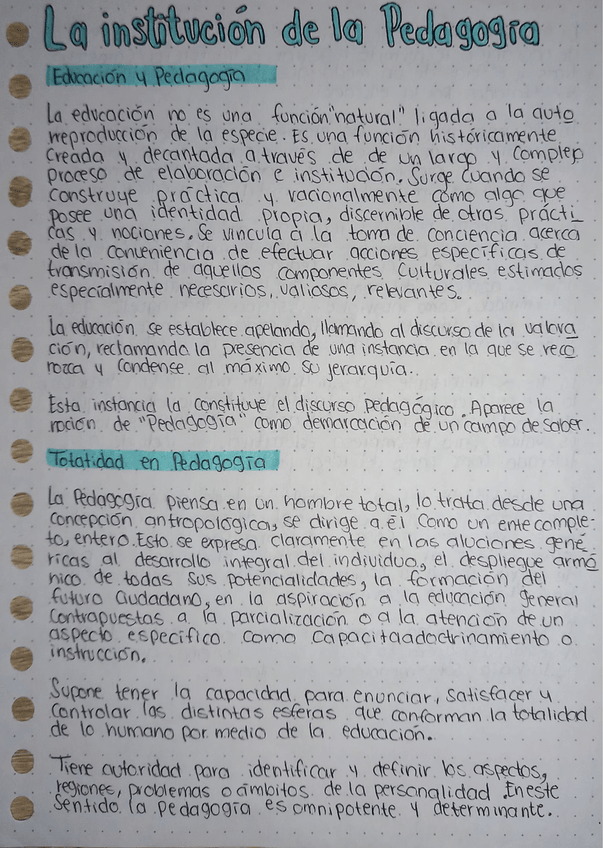 La institución de la Pedagogía
Educación y Pedagogía
La educación no es una función "natural" ligada a la auto
rreproducción de la especie. Es una función históricamente
creada y decantada a través de de un largo y complejo
proceso de elaboración e institución. Surge cuando se
construye práctica y racionalmente como algo que
posee una identidad propia, discernible de otras prácti_
cas y nociones. Se vincula a la toma de conciencia acerca
de la conveniencia de efectuar acciones específicas de
transmisión de aquellos componentes culturales estimados
especialmente necesarios, valiosos, relevantes.
La educación se establece apelando, llamando al discurso de la valora
ción, reclamando la presencia de una instancia en la que se reco
nozca y condense al máximo su jerarquía.
Esta instancia la constituye el discurso pedagógico. Aparece la
noción de "Pedagogía" como demarcación de un campo de saber.
Totatidad en Pedagogía
La Pedagogía piensa en un hombre total, lo trata desde una
concepción antropológica, se dirige a él como un ente comple-
to, entero. Esto se expresa claramente en las aluciones gené
ricas al desarrollo integral del individuo, el despliegue armó
nico de todas sus potencialidades, la formación del
futuro ciudadano, en la aspiración a la educación general
contrapuestas a la parcialización o a la atención de un
aspecto específico como capacitaadoctrinamiento o
instrucción.
Supone tener la capacidad para enunciar, satisfacer y
controlar las distintas esferas que conforman la totalidad
de lo humano por medio de la educación.
Tiene autoridad para identificar y definir los aspectos,
regiones, problemas o ámbitos de la personalidad. En este
sentido la pedagogía es omnipotente y determinante.